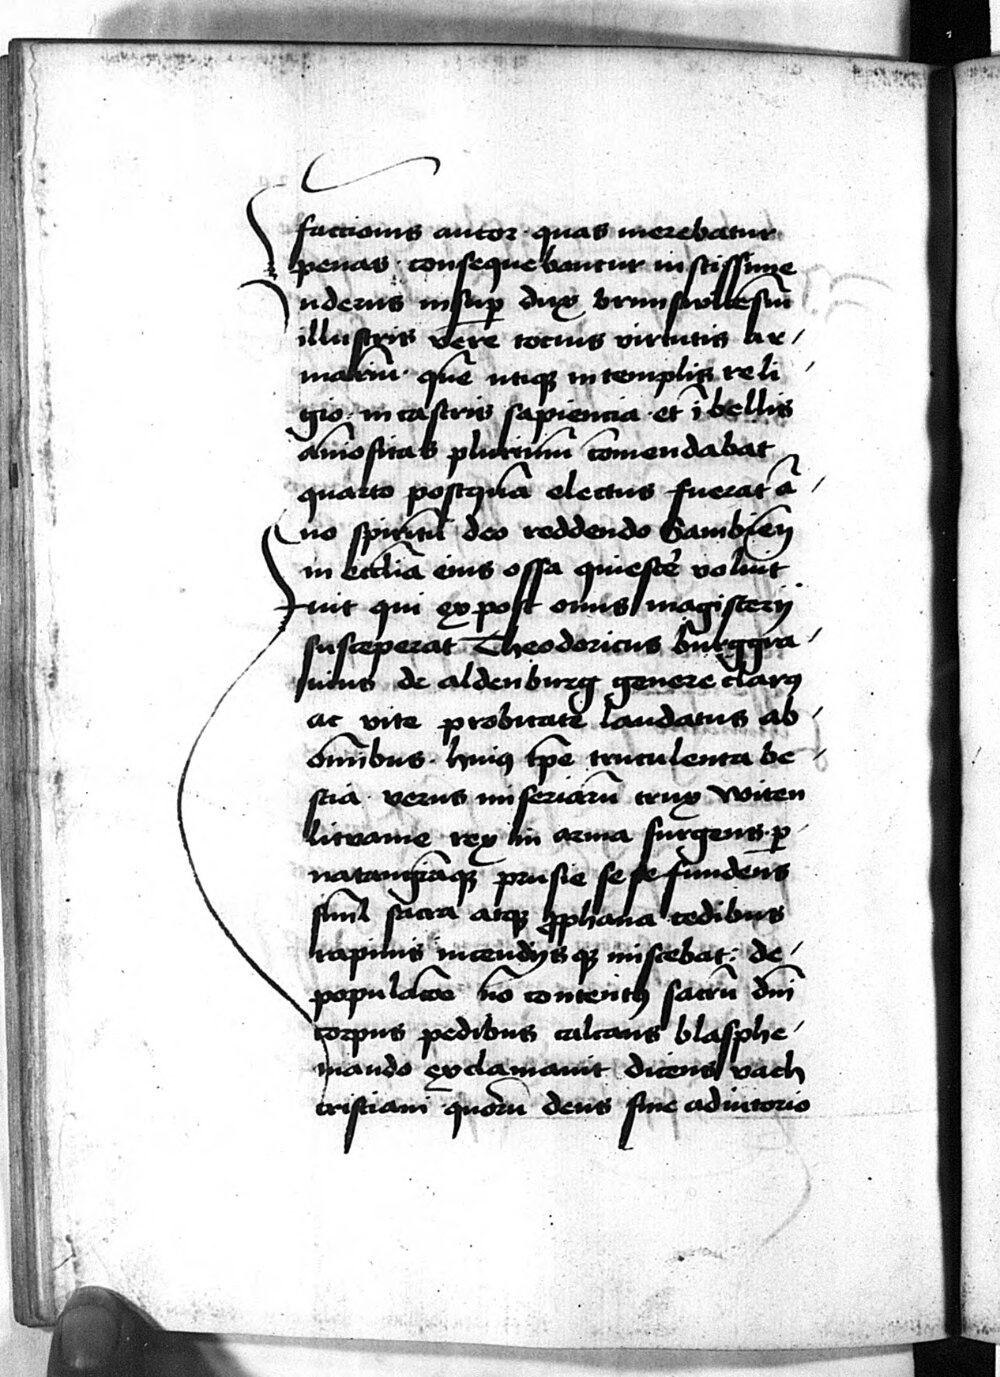 factionis autor · quas merebatur
penas · consequebantur iustissime
uderus insup̄ dux brunswicēsiū
illustris vere tocius virtutis ar
mariū · quē utiqꝫ in templis reli
gio · in castris sapiencia · et ī bellis
aīmositas plurimū cōmendabat
quarto postquā electus fuerat ā
no spiritū deo reddendo Sambien̄
in ecclīa eius ossa quiescē voluit
uit qui ex post onus magisterij
susceperat Theodoricus burggra
uius de aldenburg genere clarꝰ
ac vite probitate laudatus ab
oīnibus · huiꝰ tp̄e truculenta be
stia · verus miseriarū trux witen
litwanie rex in arma surgens · p̄
natangiāqꝫ prusie sese fundens
siml̄ sacra atqꝫ ꝓphana cedibus
rapinis incendijsqꝫ miscebat : de
populacōe nō contentꝰ sacrū dn̄i
corpus pedibus calcans blasphe
mando exclamauit dicens vach
cristiani quorū deus sine adiutorio